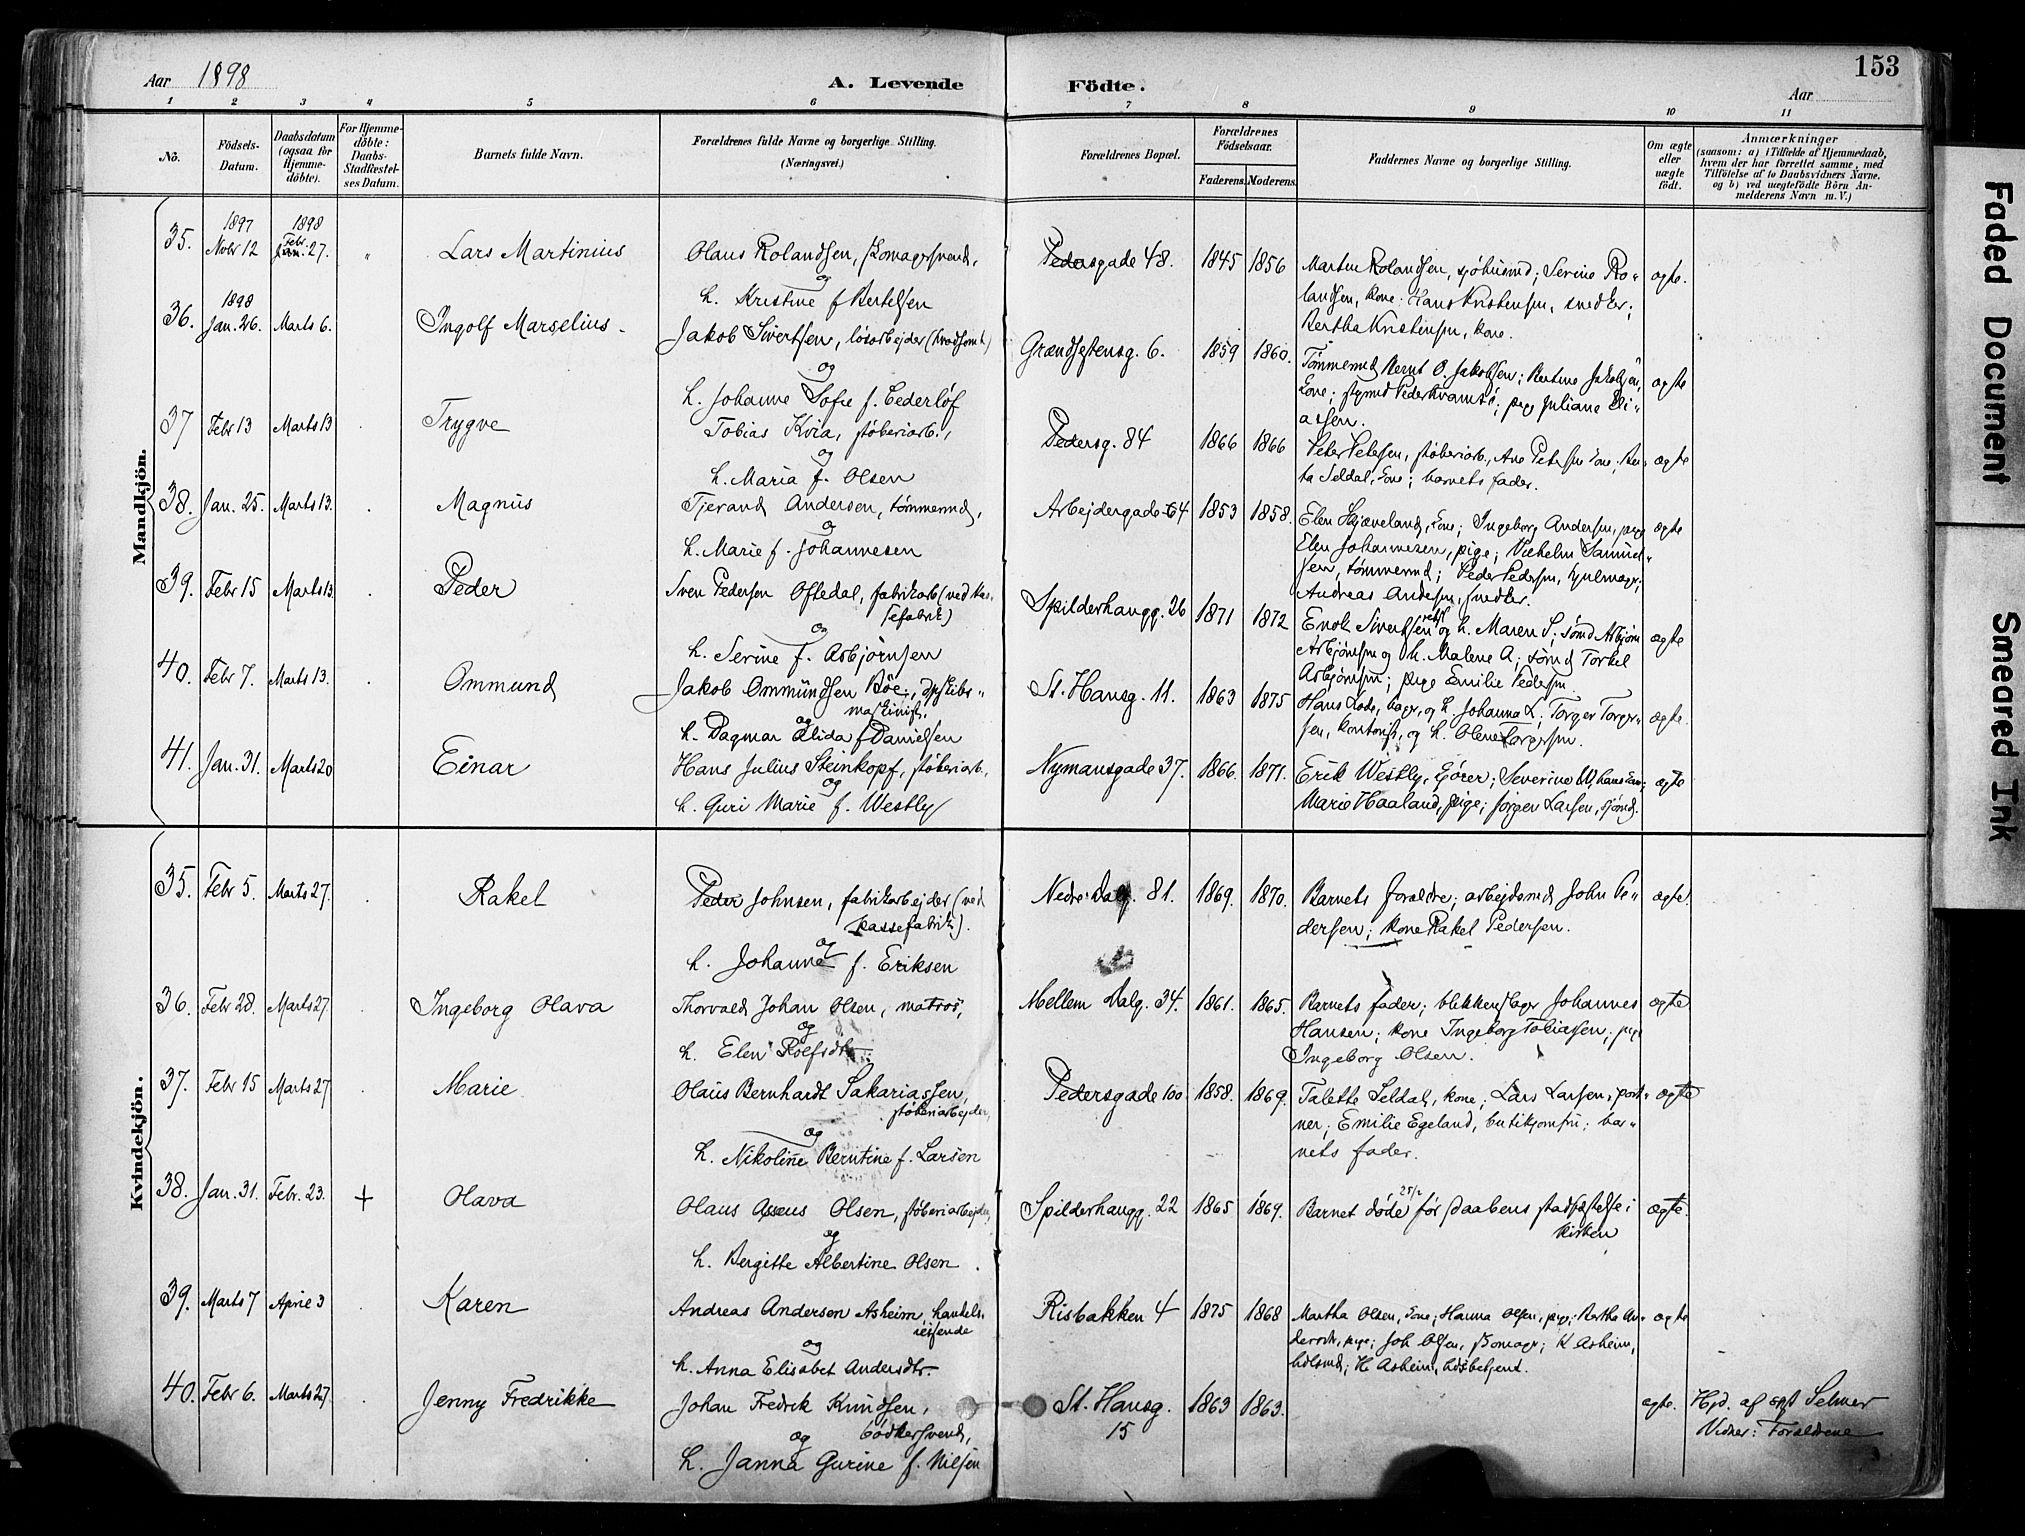 Aar 1898
A. Levende Födte.
153
Aar
1 2 3 4 5 6 7 8 9 10 11
No.
Födsels-Datum.
Daabsdatum (ogsaa for Hjemme-döbte).
For Hjemme-döbte: Daabs-Stadfæstel-ses Datum.
Barnets fulde Navn.
Forældrenes fulde Navne og borgerlige Stilling.
(Næringsvei.)
Forældrenes Bopæl.
Forældrenes Födselsaar.
Faderens. Moderens.
Faddernes Navne og borgerlige Stilling.
Om ægte eller uægte födt.
Anmærkninger
(saasom: a) i Tilfælde af Hjemmedaab, hvem der har forrettet samme, med Tilföielse af to Daabsvidners Navne. og b) ved uægtefödte Börn An-melderens Navn m. V.)
Mandkjön.
35. 1897 Novbr 12 1898 Febr. 27. " Lars Martinius
Olaus Rolandsen, skomagersvend,
og
h. Kristine f Bertelsen
Pedersgade 48. 1845 1856
Martin Rolandsen, sjøhusmd; Serine Ro-
landsen, kone; Hans Kristensen, snedker;
Bertha Kristensen, kone.
ægte.
36. 1898 Jan. 26. Marts 6. Ingolf Marselius
Jakob Sivertsen, løsarbejder
og
h. Johanne Sofie f. Cederløf
Grændsestensg. 6. 1859 1860.
Tømmermd Bernt O. Jakobsen; Bertine Jakobsen,
kone; Peder Kvamsø; pige Juliane Eli-
assen.
ægte
37 Febr 13 Marts 13 Trygve
Tobias Kvia, støberiarb.,
og
h. Maria f. Olsen
Pedersg. 84 1866 1866
Peter Petersen, støberiarb., Ane Petersen kone; Ber-
ta Seldal, kone; barnets fader.
ægte
38. Jan. 25. Marts 13. Magnus
Tjerand Andersen, tømmermd,
og
h. Marie f. Johannesen
Arbejdergade 64 1853 1858.
Elen Skjæveland, kone; Ingeborg Andersen, pige
Elen Johannesen, pige; Vilhelm Samuel-
sen, tømmermd; Peder Pedersen, hjulmagr;
Andreas Andersen, snedker.
ægte
39. Febr 15 Marts 13 Peder
Sven Pedersen Oftedal, fabrikarb (ved kas-
sefabrik)
og
h. Serine f. Asbjørnsen
Spilderhaugg. 26 1871 1872
Enok Sivertsen og h. Maren S; sømd Asbjørn
Asbjørnsen og h. Malene A; sømd Torkel
Asbjørnsen; pige Emilie Pedersen.
ægte
40. Febr 7. Marts 13. Ommund
Jakob Ommundsen Bøe, dpskibs-
maskinist,
og
h. Dagmar Alida f Danielsen
St. Hansg. 11. 1863 1875
Hans Lode, bager, og h. Johanna L; Torger Torger-
sen, kontorist, og h. Olene Torgersen.
ægte.
41. Jan. 31. Marts 20 Einar
Hans Julius Steinkopf, støberiarb.,
og
h. Guri Marie f. Westly
Nymansgade 37. 1866. 1871.
Erik Westly, kjører; Severine W, hans kone;
Marie Haaland, pige; Jørgen Larsen, sjømd.
ægte
Kvindekjön.
35. Febr 5. Marts 27. Rakel
Peder Johnsen, fabrikarbejder (ved
kassefabrik).
og
h. Johanne f. Eriksen
Nedre Dalg. 81. 1869. 1870.
Barnets forældre; arbejdsmd John Pe-
dersen; kone Rakel Pedersen.
ægte.
36. Febr 28. Marts 27. Ingeborg Olava
Thorvald Johan Olsen, matros,
og
h. Elen Rolfsdtr.
Mellem Dalg. 34. 1861. 1865.
Barnets fader; blikkenslager Johannes
Hansen; kone Ingeborg Tobiassen, pige
Ingeborg Olsen.
ægte
37. Febr 15 Marts 27 Marie
Olaus Bernhardt Sakariassen,
støberiarbejder,
og
h. Nikoline Berntine f. Larsen
Pedersgade 100 1858. 1869.
Talette Seldal, kone; Lars Larsen, port-
ner; Emilie Egeland, butikjomfru; bar-
nets fader.
ægte
38. Jan. 31. Febr. 23. + Olava
Olaus Asseus Olsen, støberiarbejder,
og
h. Bergitte Albertine Olsen.
Spilderhaugg. 22 1865 1869.
Barnet døde 25/2 før daabens stadfæstelse i
kirken
ægte.
39. Marts 7 April 3 Karen
Andreas Andersen Asheim, handels-
reisende
og
h. Anna Elisabet Andersdtr.
Risbakken 4 1875 1868
Martha Olsen, kone; Hanna Olsen, pige; Bertha An-
dersdtr, pige; Joh Olsen, skomagr; K Asheim,
hdlsmd; H. Asheim, hdlsbetjent.
ægte
40. Febr 6. Marts 27. Jenny Fredrikke
Johan Fredrik Knudsen,
bødkersvend,
og
h. Janna Gurine f. Nilsen
St. Hansg. 15 1863 1863.
ægte.
Hjd. af Selmer
Vidner: Forældrene
Faded Document
Smeared Ink